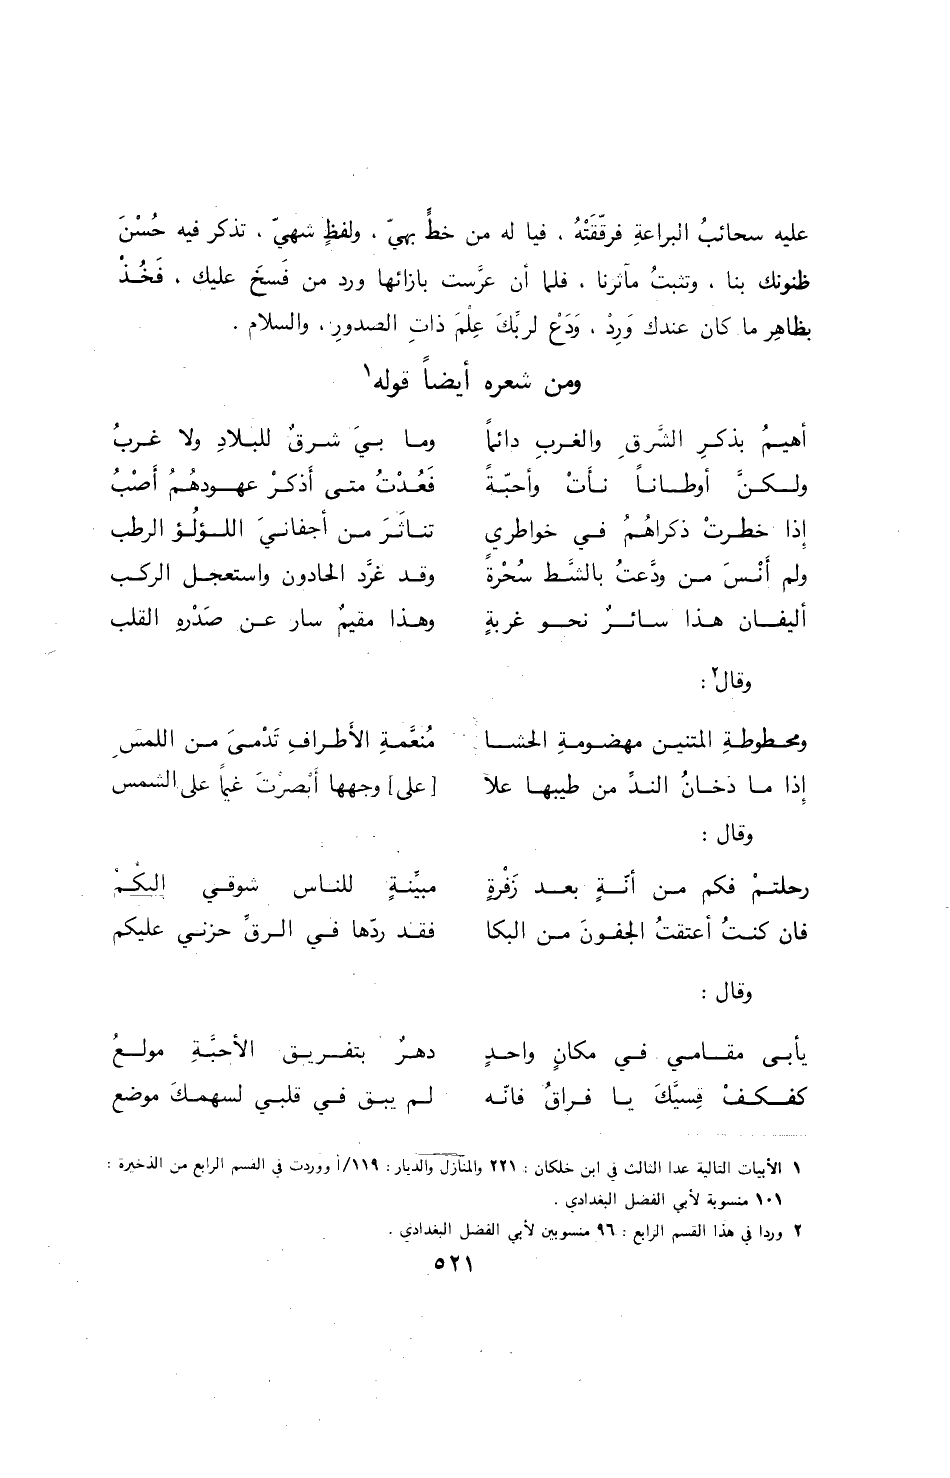 عليه سحائبُ البراعةِ فرقّقَتْهُ ، فيا له من خطٍّ بهيّ ، ولفظٍ شهيّ ، تذكر فيه حُسْنَ
ظنونك بنا ، وتثبتُ مآثرنا ، فلما أن عرَّست بازائها ورد من فَسَخَ عليك ، فَخُذْ
بظاهِرِ ما كان عندك وَرِدْ ، وَدَعْ لربِّكَ عِلْمَ ذاتِ الصدورِ ، والسلام .
ومن شعره أيضاً قوله١
أهيمُ بذكرِ الشَّرقِ والغربِ دائماً وما بيَ شرقٌ للبلادِ ولا غربُ
ولكنَّ أوطاناً نأتْ وأحبّةً فَعُدْتُ متى أذكرْ عهودهُمُ أصْبُ
إذا خطرتْ ذكراهُمُ في خواطري تناثَرَ من أجفانيَ اللؤلُؤ الرطب
ولم أنْسَ من ودَّعتُ بالشَّط سُحْرةً وقد غرَّد الحادون واستعجل الركب
أليفان هذا سائرٌ نحو غربةٍ وهذا مقيمٌ سار عن صَدْرِهِ القلب
وقال٢ :
ومحطوطةِ المتنين مهضومةِ الحشا مُنعَّمةِ الأطرافِ تَدْمىَ من اللمسِ
إذا ما دخانُ الندِّ من طيبها علا [على] وجهها أبْصرْتَ غيماً على الشمس
وقال :
رحلتمْ فكم من أنّةٍ بعد زَفْرةٍ مبيِّنةٍ للناس شوقي إليكُمْ
فان كنتُ أعتقتُ الجفونَ من البكا فقد ردّها في الرقِّ حزني عليكم
وقال :
يأبى مقامي في مكانٍ واحدٍ دهرٌ بتفريق الأحبَّةِ مولعُ
كفكفْ قِسِيَّكَ يا فراقُ فانّه لم يبق في قلبي لسهمكَ موضع
١ الأبيات التالية عدا الثالث في ابن خلكان : ٢٢١ والمنازل والديار : ١١٩/أ ووردت في القسم الرابع من الذخيرة :
١٠١ منسوبة لأبي الفضل البغدادي .
٢ وردا في هذا القسم الرابع : ٩٦ منسوبين لأبي الفضل البغدادي .
٥٢١